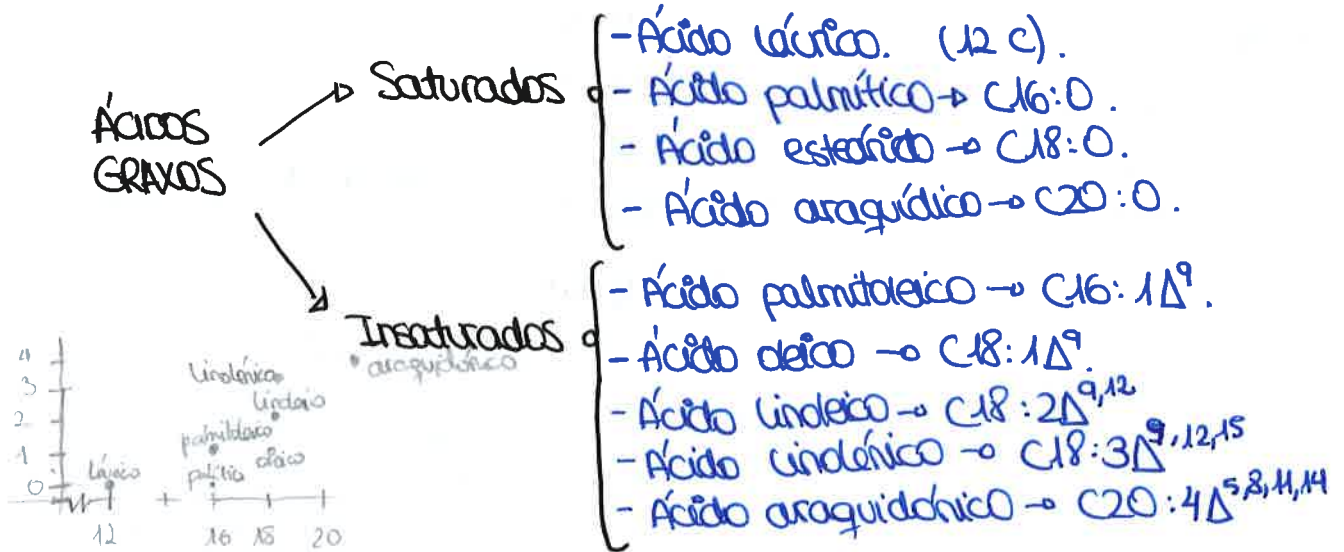 ÁCIDOS
GRAXOS
Saturados
- Ácido láurico. (12 C).
- Ácido palmítico → C16:0.
- Ácido esteárico → C18:0.
- Ácido araquídico → C20:0.
Insaturados
- Ácido palmitoleico → C16:1Δ⁹.
- Ácido oleico → C18:1Δ⁹.
- Ácido linoleico → C18:2Δ⁹,¹²
- Ácido linolénico → C18:3Δ⁹,¹²,¹⁵
- Ácido araquidónico → C20:4Δ⁵,⁸,¹¹,¹⁴
4
3
2
1
0
araquidónico
Linolénico
linoleico
oleico
12
16
18
20